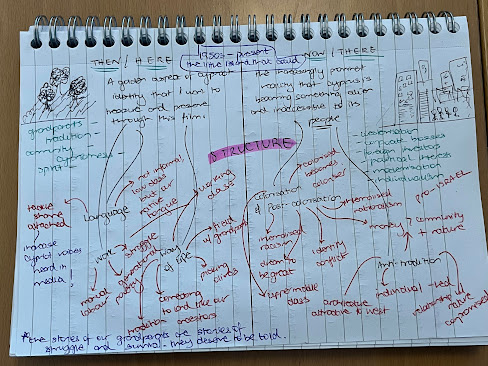 THEN / HERE
1950s - present
the little island that could
NOW / THERE
A golden aspect of cypriot
identity that I want to
treasure and preserve
through this film.
the increasingly
reality that cyprus is
becoming something alien
and inaccessible to its
people
grandparents
tradition
community
cypriotness
spirit
- westernisation
- corporate
- foreign investors
- political interests
- modernisation
- individualism
STRUCTURE
Language
not informal
low class
but our
tongue
working
class
taboo
shame
attached
increase
cypriot voices
heard in
media!
work
struggle
generational
poverty
manual
labour
way
of life
field
w/ grandparents
making
connecting
to land like our
ancestors
traditions
colonisation
& post-colonialism
colonised
becomes
coloniser
internalised
nationalism
pro-ISRAEL
money > community
+ nature
internalised
racism
dream to
be great
identity
conflict
upper-middle
class
Anti-tradition
architecture
attractive to west
individual - led
relationship w/ nature
compromised
*the stories of our grandparents are stories of
struggle and survival - they deserve to be told.